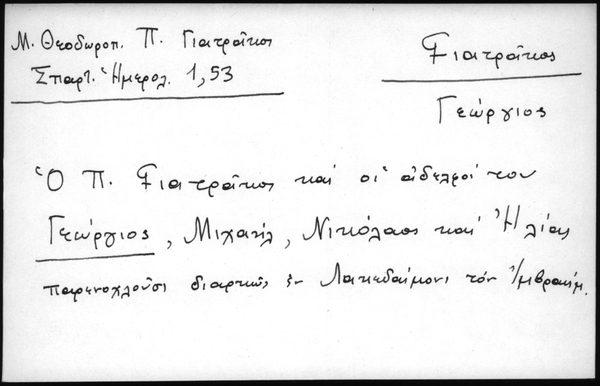 Μ. Θεοδωροπ. Π. Γιατρᾶκος
Σπαρτ. Ἡμερολ. 1,53
Γιατρᾶκος
Γεώργιος
Ὁ Π. Γιατρᾶκος καί οἱ ἀδελφοί του
Γεώργιος, Μιχαήλ, Νικόλαος καί Ἠλίας
παρενοχλοῦσι διαρκῶς ἐν Λακεδαίμονι τόν Ἰμβραήμ.